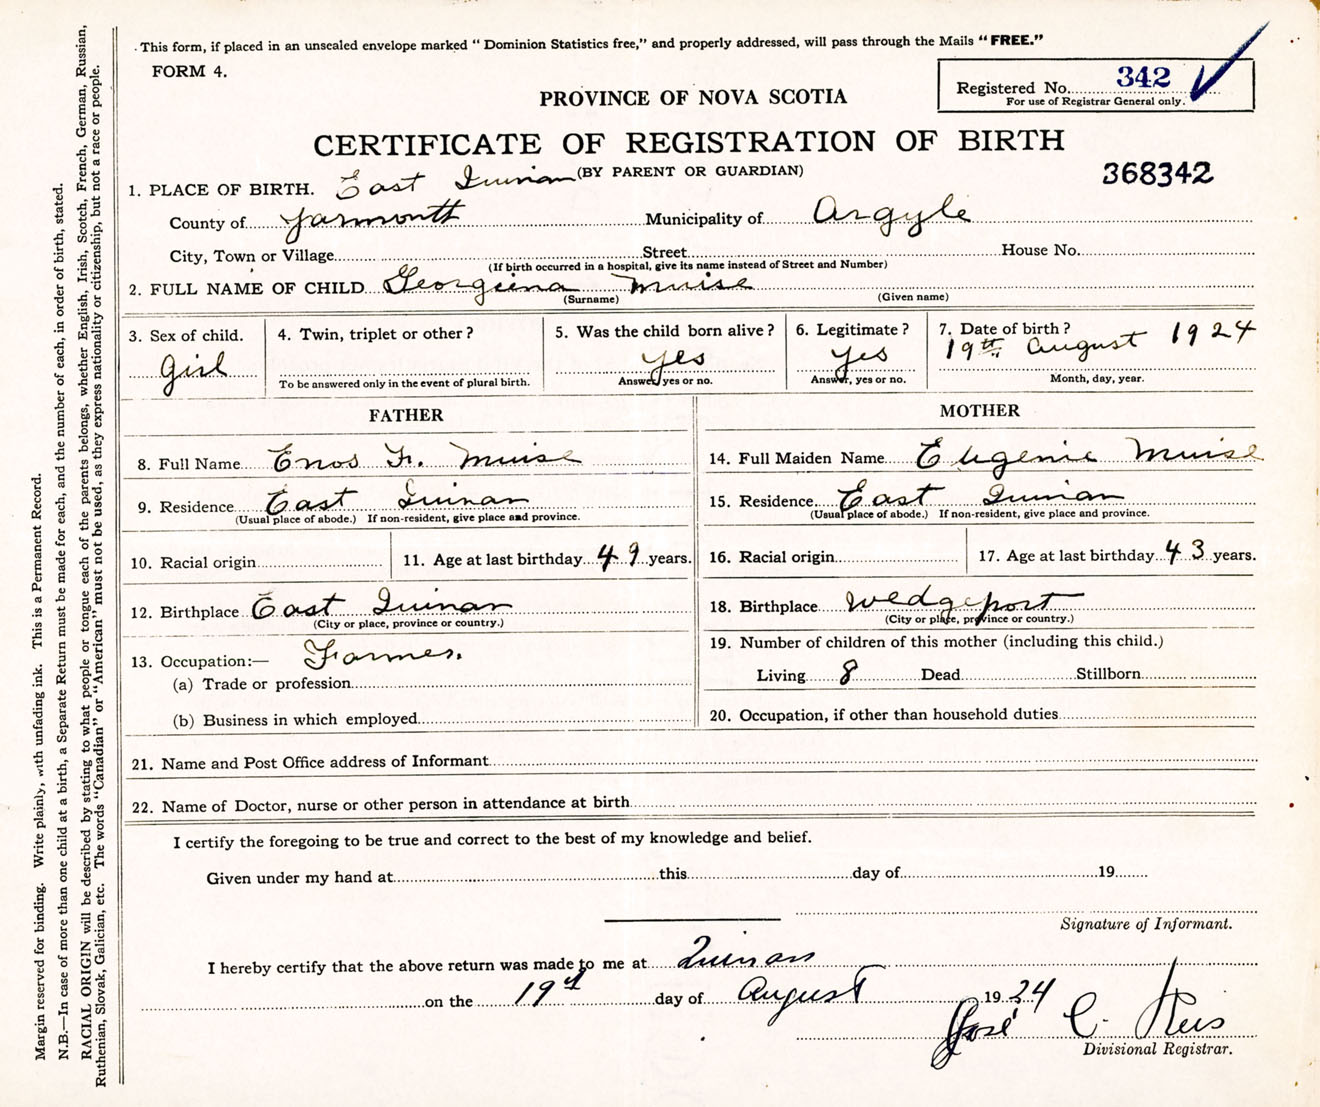 This form, if placed in an unsealed envelope marked "Dominion Statistics free," and properly addressed, will pass through the Mails "FREE."
FORM 4.
Registered No. 342
For use of Registrar General only.
PROVINCE OF NOVA SCOTIA
CERTIFICATE OF REGISTRATION OF BIRTH
(BY PARENT OR GUARDIAN)
368342
1. PLACE OF BIRTH. East Quinan
County of Yarmouth Municipality of Argyle
City, Town or Village Street House No.
(If birth occurred in a hospital, give its name instead of Street and Number)
2. FULL NAME OF CHILD Georgiena Muise
(Surname) (Given name)
3. Sex of child. Girl
4. Twin, triplet or other?
To be answered only in the event of plural birth.
5. Was the child born alive? Yes
Answer, yes or no.
6. Legitimate? Yes
Answer, yes or no.
7. Date of birth? 19th August 1924
Month, day, year.
FATHER
8. Full Name Enos Fr. Muise
9. Residence East Quinan
(Usual place of abode.) If non-resident, give place and province.
10. Racial origin 11. Age at last birthday 49 years.
12. Birthplace East Quinan
(City or place, province or country.)
13. Occupation:— Farmer.
(a) Trade or profession
(b) Business in which employed
MOTHER
14. Full Maiden Name Eugenie Muise
15. Residence East Quinan
(Usual place of abode.) If non-resident, give place and province.
16. Racial origin 17. Age at last birthday 43 years.
18. Birthplace Wedgeport
(City or place, province or country.)
19. Number of children of this mother (including this child.)
Living 8 Dead Stillborn
20. Occupation, if other than household duties
21. Name and Post Office address of Informant
22. Name of Doctor, nurse or other person in attendance at birth
I certify the foregoing to be true and correct to the best of my knowledge and belief.
Given under my hand at this day of 19
Signature of Informant.
I hereby certify that the above return was made to me at Quinan
on the 19th day of August 1924
José C. Reis
Divisional Registrar.
Margin reserved for binding. Write plainly, with unfading ink. This is a Permanent Record.
N.B.—In case of more than one child at a birth, a Separate Return must be made for each, and the number of each, in order of birth, stated.
RACIAL ORIGIN will be described by stating to what people or tongue each of the parents belongs, whether English, Irish, Scotch, French, German, Russian,
Ruthenian, Slovak, Galician, etc. The words "Canadian" or "American" must not be used, as they express nationality or citizenship, but not a race or people.